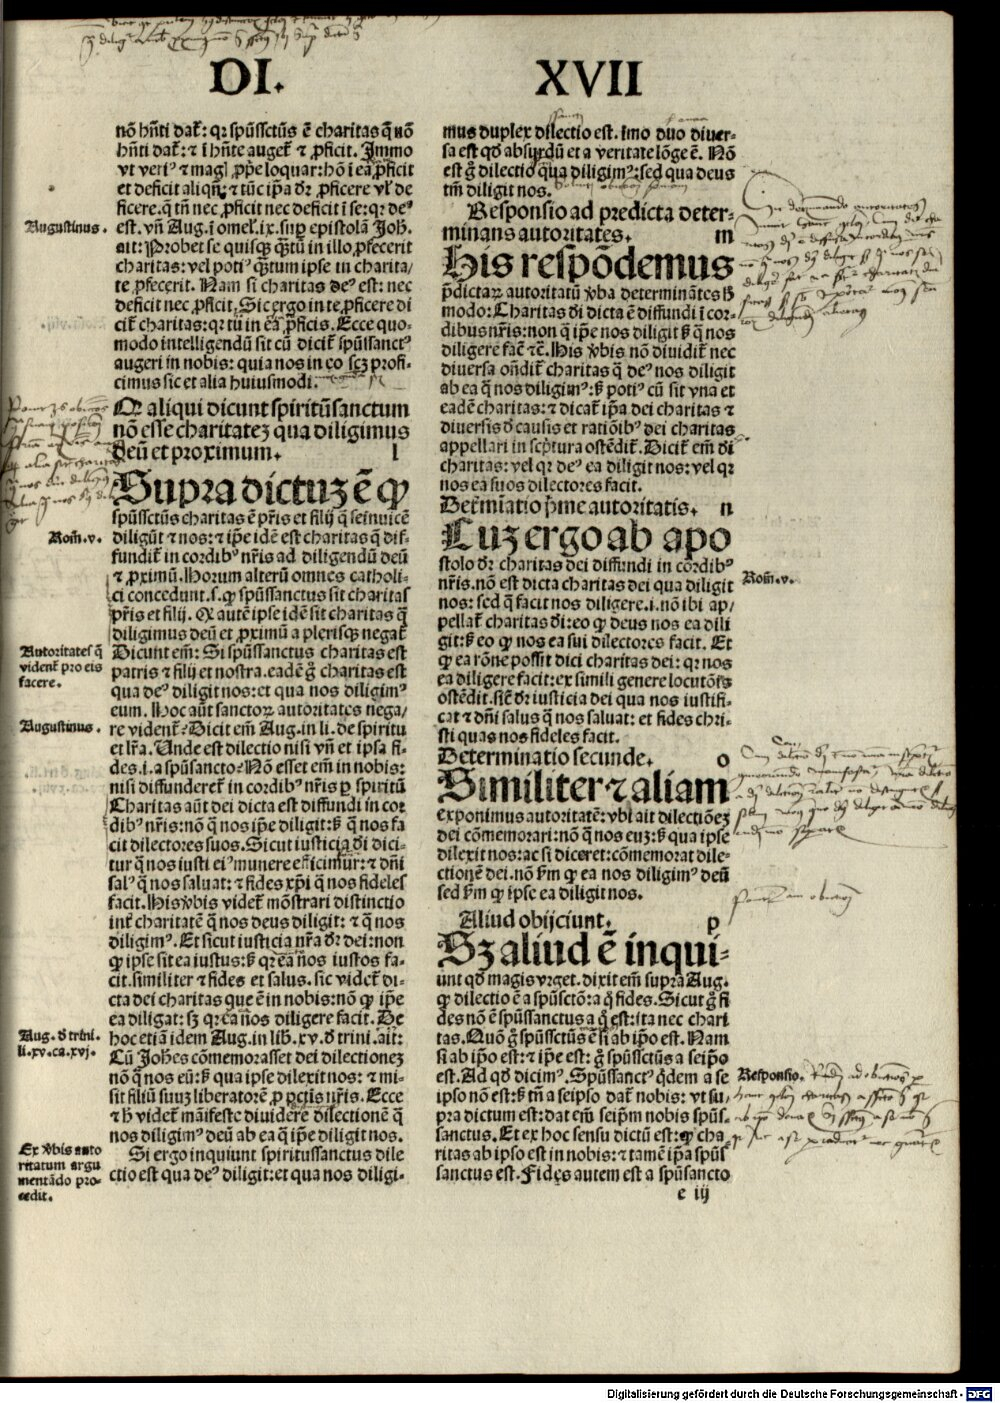 DI. XVII
nō hn̄ti dat᷑: qꝛ spūssctūs ē charitas q̄ nō
hn̄ti dat᷑: ⁊ ī hn̄te auget᷑ ⁊ ꝓficit. Immo
vt veriꝰ ⁊ magꝭ ꝓpe loquar: hō ī ea ꝓficit
et deficit aliqn̄: ⁊ tūc ip̄a dr̄ ꝓficere vl̓ de
ficere. q̄ tn̄ nec ꝓficit nec deficit ī se: qꝛ deꝰ
Augustinus.
est. vn̄ Aug. ī omel̓. ix. suꝑ epistolā Joh̄.
ait: Probet se quisqꝫ q̄tū in illo ꝓfecerit
charitas: vel potiꝰ q̄tum ipse in charita/
te ꝓfecerit. Nam si charitas deꝰ est: nec
deficit nec ꝓficit. Sic ergo in te ꝓficere di
cit᷑ charitas: qꝛ tū in ea ꝓficis. Ecce quo-
modo intelligendū sit cū dicit᷑ spūssanctꝰ
augeri in nobis: quia nos in eo scꝫ profi-
cimus sic et alia huiusmodi.
Qꝛ aliqui dicunt spiritūsanctum
nō esse charitateꝫ qua diligimus
deū et proximum. l
Supra dictuꝫ ē ꝙ
spūssctūs charitas ē pr̄is et filij q̄ se inuicē
Rom̄. v.
diligūt ⁊ nos: ⁊ ip̄e idē est charitas q̄ dif-
fundit᷑ in cordibꝰ nr̄is ad diligendū deū
⁊ ꝓximū. Horum alterū omnes catholi-
ci concedunt. s. ꝙ spūssanctus sit charitas
pr̄is et filij. Qꝛ autē ipse idē sit charitas q̄
diligimus deū et ꝓximū a plerisqꝫ negat᷑
Autoritates q̄
vident᷑ pro eis
facere.
Dicunt em̄: Si spūssanctus charitas est
patris ⁊ filij et nostra. eadē ḡ charitas est
qua deꝰ diligit nos: et qua nos diligimꝰ
eum. Hoc aūt sanctoꝝ autoritates nega/
Augustinus.
re vident᷑. Dicit em̄ Aug. in li. de spiritu
et lr̄a. Unde est dilectio nisi vn̄ et ipsa fi-
des. i. a spūsancto? Nō esset em̄ in nobis:
nisi diffunderet᷑ in cordibꝰ nr̄is ꝑ spiritū
Charitas aūt dei dicta est diffundi in cor
dibꝰ nr̄is: nō q̄ nos ip̄e diligit: sꝫ q̄ nos fa
cit dilectores suos. Sicut iusticia d̓i dici-
tur q̄ nos iusti eiꝰ munere efficimur: ⁊ dn̄i
salꝰ q̄ nos saluat: ⁊ fides xp̄i q̄ nos fideles
facit. His v̓bis videt᷑ mōstrari distinctio
int᷑ charitatē q̄ nos deus diligit: ⁊ q̄ nos
diligimꝰ. Et sicut iusticia nr̄a dr̄ dei: non
ꝙ ipse sit ea iustus: sꝫ qꝛ ea nos iustos fa-
cit. similiter ⁊ fides et salus. sic videt᷑ di-
cta dei charitas que ē in nobis: nō ꝙ ip̄e
ea diligat: sꝫ qꝛ ea nos diligere facit. De
Aug. d̓ trini.
li. xv. ca. xvj.
hoc etiā idem Aug. in lib. xv. d̓ trini. ait:
Cū Joh̄es cōmemorasset dei dilectioneꝫ
nō q̄ nos eū: sꝫ qua ipse dilexit nos: ⁊ mi-
sit filiū suuꝫ liberatorē ꝓ pctis nr̄is. Ecce
⁊ h̓ videt᷑ māifeste diuidere dilectionē q̄
nos diligimꝰ deū ab ea q̄ ip̄e diligit nos.
Ex v̓bis auto
ritatum argu
mentādo pro-
cedit.
Si ergo inquiunt spiritussanctus dile
ctio est qua deꝰ diligit: et qua nos diligi-
mus duplex dilectio est. īmo duo diuer-
sa est qd̓ absurdū et a veritate lōge ē. Nō
est ḡ dilectio qua diligimꝰ: sed qua deus
tm̄ diligit nos.
Responsio ad predicta deter-
minans autoritates. m
His respōdemus
p̄dictaꝝ autoritatū v̓ba determinātes h̓
modo: Charitas d̓i dicta ē diffundi ī cor-
dibus nr̄is: non q̄ ip̄e nos diligit sꝫ q̄ nos
diligere fac̄ ⁊c̄. His v̓bis nō diuidit᷑ nec
diuersa on̄dit᷑ charitas q̄ deꝰ nos diligit
ab ea q̄ nos diligimꝰ: sꝫ potiꝰ cū sit vna et
eadē charitas: ⁊ dicat᷑ ip̄a dei charitas ⁊
diuersis d̓ causis et ratiōibꝰ dei charitas
appellari in scp̄tura ostēdit᷑. Dicit᷑ em̄ d̓i
charitas: vel qꝛ deꝰ ea diligit nos: vel qꝛ
nos ea suos dilectores facit.
Determīatio p̄me autoritatis. n
Cuꝫ ergo ab apo
stolo dr̄ charitas dei diffundi in cordibꝰ
Rom̄. v.
nr̄is. nō est dicta charitas dei qua diligit
nos: sed q̄ facit nos diligere. i. nō ibi ap/
pellat᷑ charitas d̓i: eo ꝙ deus nos ea dili
git: sꝫ eo ꝙ nos ea sui dilectores facit. Et
ꝙ ea rōne possit dici charitas dei: qꝛ nos
ea diligere facit: ex simili genere locutōis
ostēdit. sic̄ dr̄ iusticia dei qua nos iustifi-
cat ⁊ dn̄i salus q̄ nos saluat: et fides chri-
sti quas nos fideles facit.
Determinatio secunde. o
Similiter ⁊ aliam
exponimus autoritatē: vbi ait dilectioneꝫ
dei cōmemorari: non q̄ nos euꝫ: sꝫ qua ipse
dilexit nos: ac si diceret: cōmemorat dile-
ctionē dei. nō fm̄ ꝙ ea nos diligimꝰ deū
sed fm̄ ꝙ ipse ea diligit nos.
Aliud obijciunt. p
Sꝫ aliud ē inqui-
unt qd̓ magis vrget. dixit em̄ supra Aug.
ꝙ dilectio ē a spūsctō: a q̄ fides. Sicut ḡ fi
des nō ē spūssanctus a q̄ est: ita nec chari
tas. Quō ḡ spūssctūs ē si ab ip̄o est. Nam
si ab ip̄o est: ⁊ ip̄e est: ḡ spūssctūs a seip̄o
Responsio.
est. Ad qd̓ dicimꝰ. Spūssanctꝰ q̄dem a se
ipso nō est: sꝫ tn̄ a seipso dat᷑ nobis: vt su/
pra dictum est: dat em̄ seip̄m nobis spūs-
sanctus. Et ex hoc sensu dictū est: ꝙ cha
ritas ab ipso est in nobis: ⁊ tamē ip̄a spūs
sanctus est. Fides autem est a spūsancto
e iij
Digitalisierung gefördert durch die Deutsche Forschungsgemeinschaft - DFG